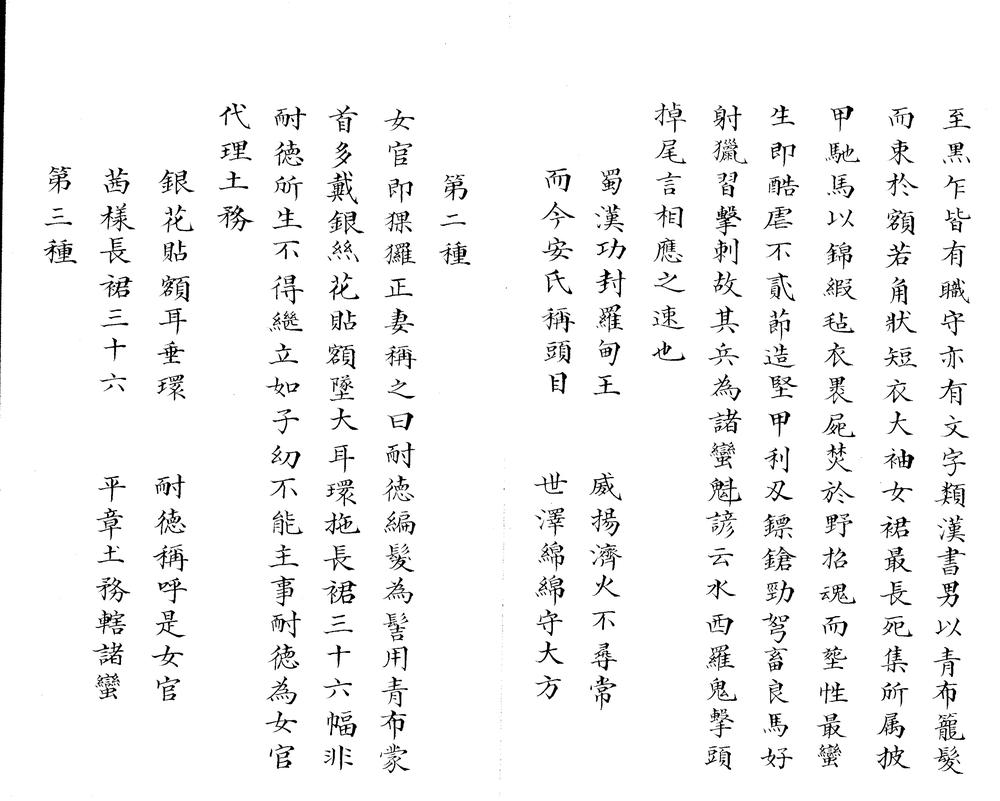 至黒乍皆有職守亦有文字類漢書男以青布籠髮
而束於額若角狀短衣大袖女裙最長死集所属披
甲馳馬以錦緞毡衣褁屍焚於野招魂而塟性最蠻
生即酷虐不貳茆造堅甲利刄鏢鎗勁弩畜良馬好
射獵習擊刺故其兵為諸蠻魁諺云水西羅鬼擊頭
掉尾言相應之速也
蜀漢功封羅甸王 威揚濟火不尋常
而今安氏稱頭目 世澤綿綿守大方
第二種
女官即猓玀正妻稱之曰耐德編髮為髻用青布蒙
首多戴銀絲花貼額墜大耳環拖長裙三十六幅非
耐德所生不得繼立如子幼不能主事耐德為女官
代理土務
銀花貼額耳垂環 耐德稱呼是女官
茜樣長裙三十六 平章土務轄諸蠻
第三種